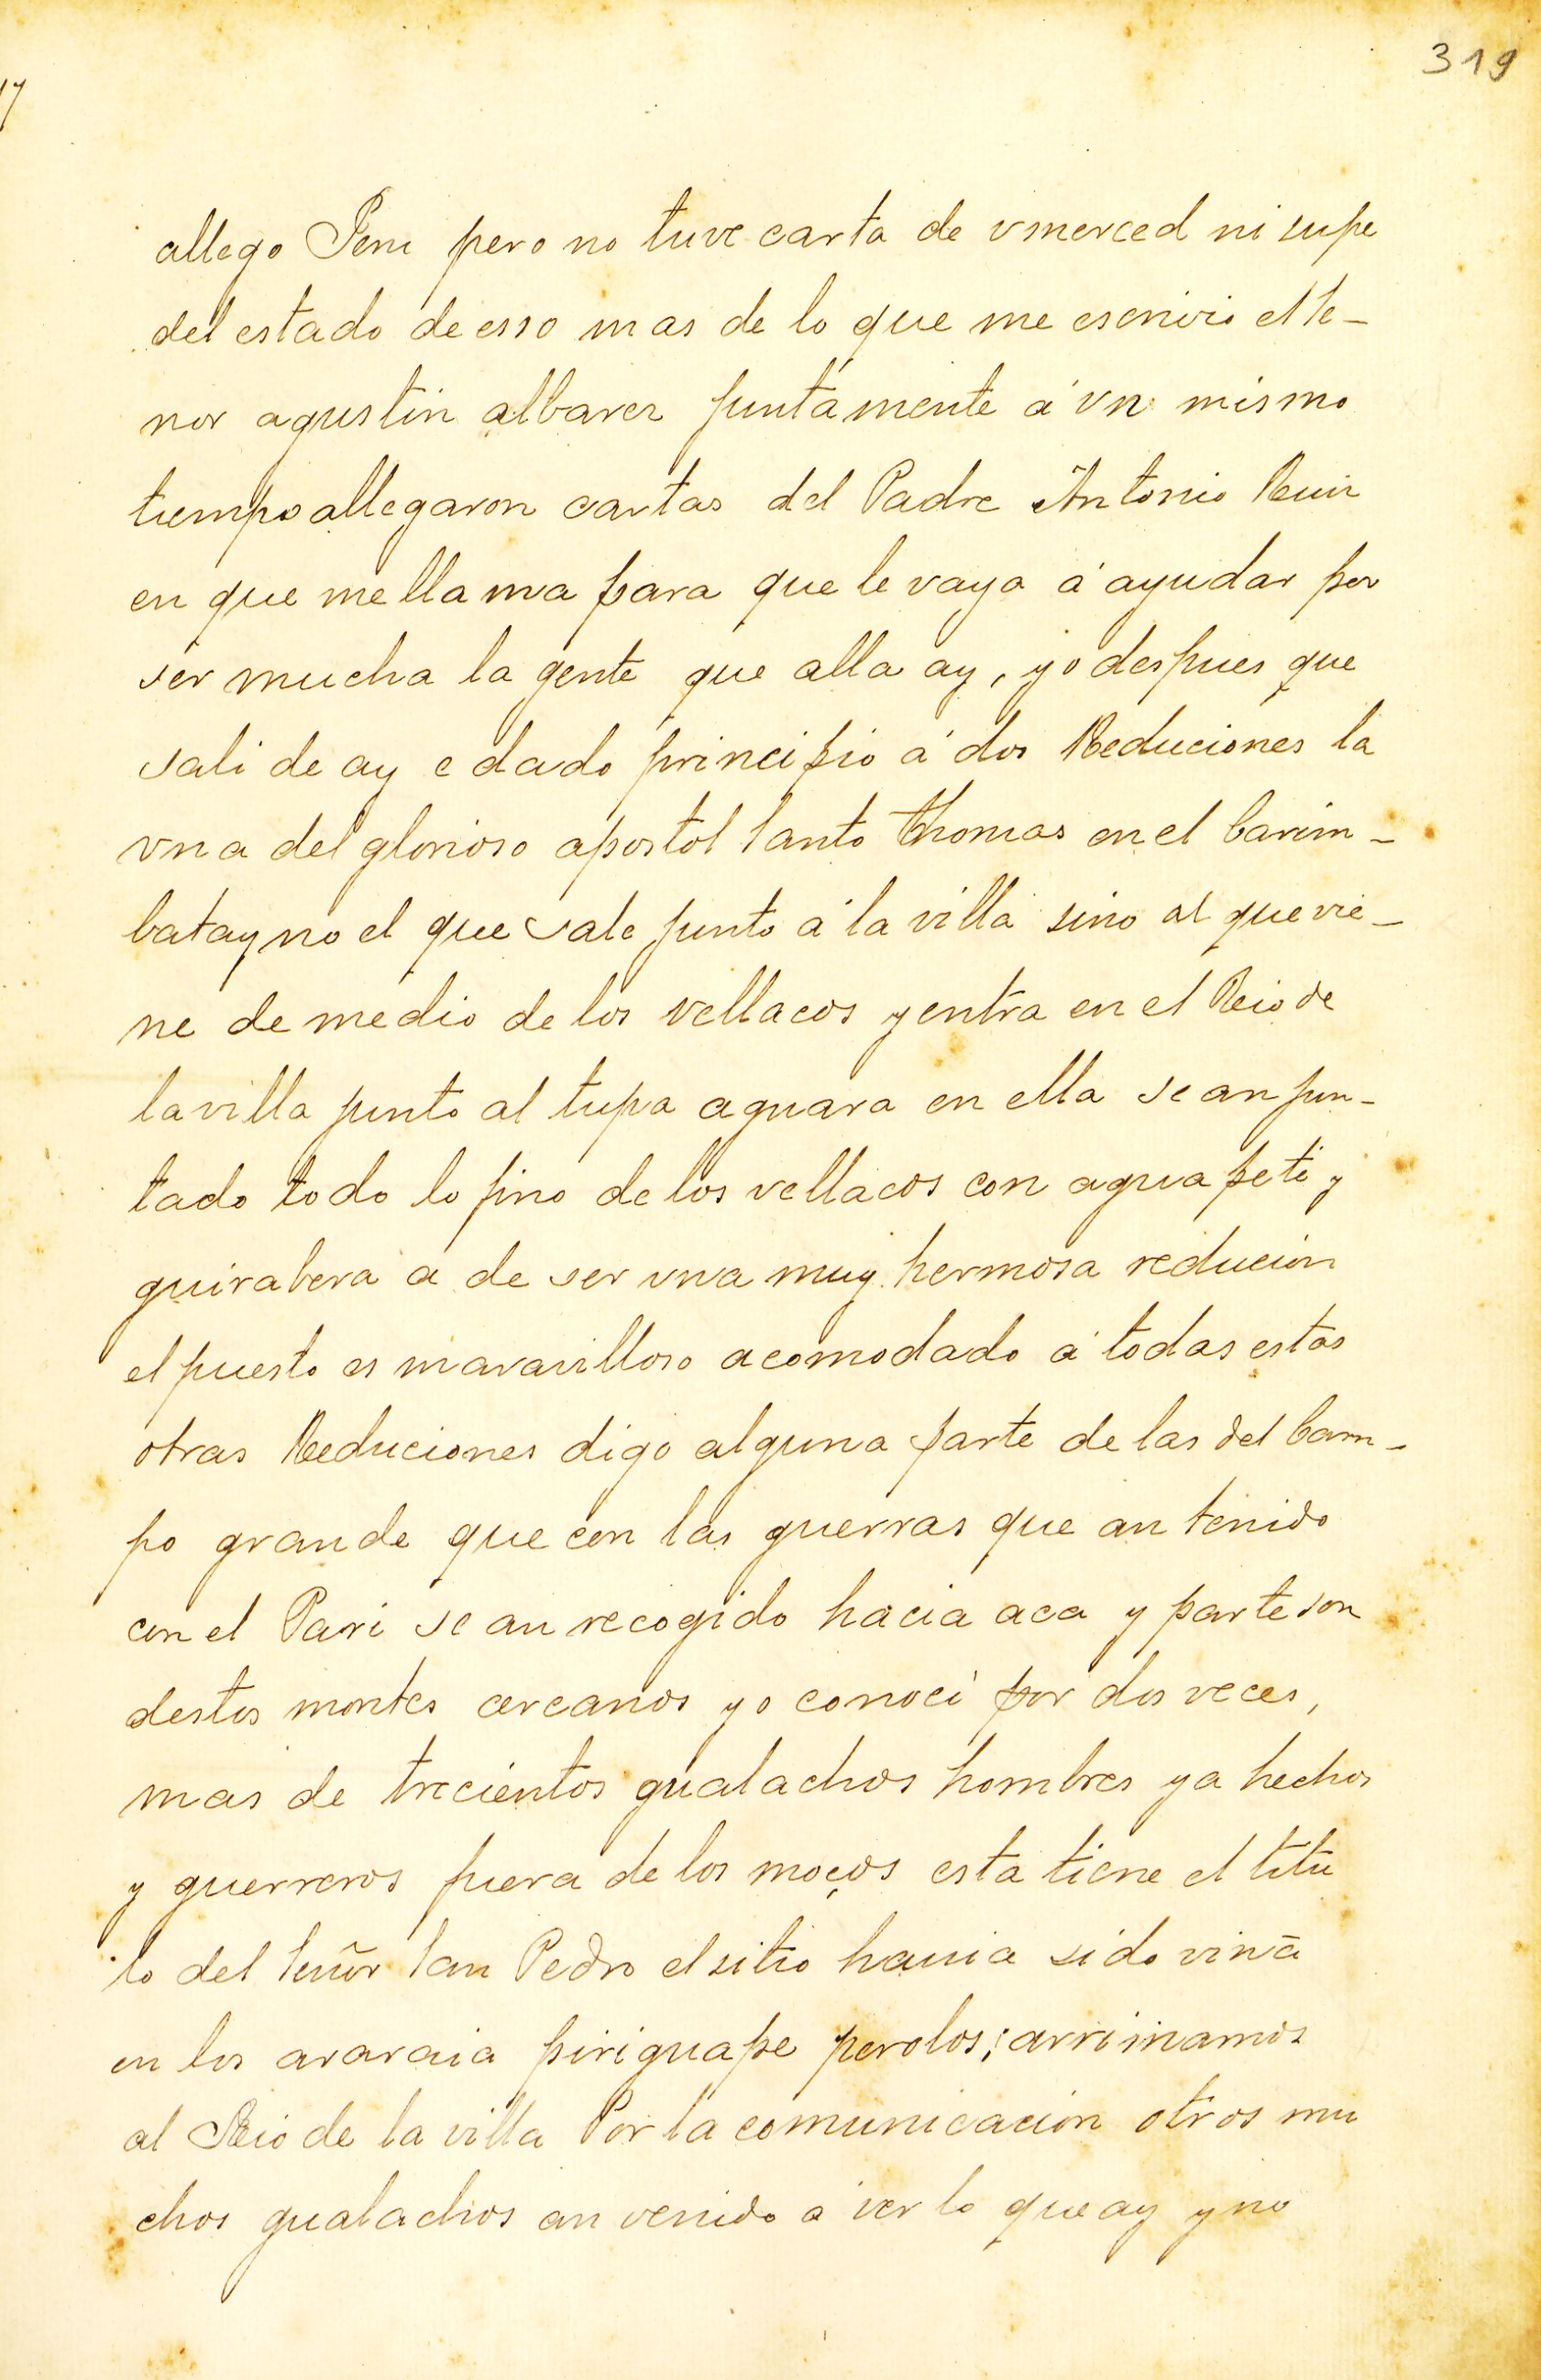 319
allego Peru pero no tuve carta de vmerced ni supe
del estado de esso mas de lo que me escrivio el Se-
nor agustin albarez juntamente á vn mismo
tiempo allegaron cartas del Padre Antonio Ruiz
en que me llama para que le vaya á ayudar por
ser mucha la gente que alla ay, yo despues que
sali de ay e dado principio á dos Reduciones la
vna del glorioso apostol Santo Thomas en el Carim-
batay no el que sale junto á la villa sino al que vie-
ne de medio de los vellacos y entra en el Rio de
la villa junto al tupa aguara en ella se an jun-
tado todo lo fino de los vellacos con agua peti y
guirabera a de ser vna muy hermosa reducion
el puesto es maravilloso acomodado á todas estas
otras Reduciones digo alguna parte de las del Cam-
po grande que con las guerras que an tenido
con el Pari se an recogido hacia aca y parte son
destos montes cercanos yo conoci por dos veces,
mas de trecientos gualachos hombres ya hechos
y guerreros fuera de los moços esta tiene el titu
lo del Señor San Pedro el sitio hauia sido
en los araraia piriguape pero los arrimamos
al Rio de la villa Por la comunicacion otros mu
chos gualachos an venido a ver lo que ay y no